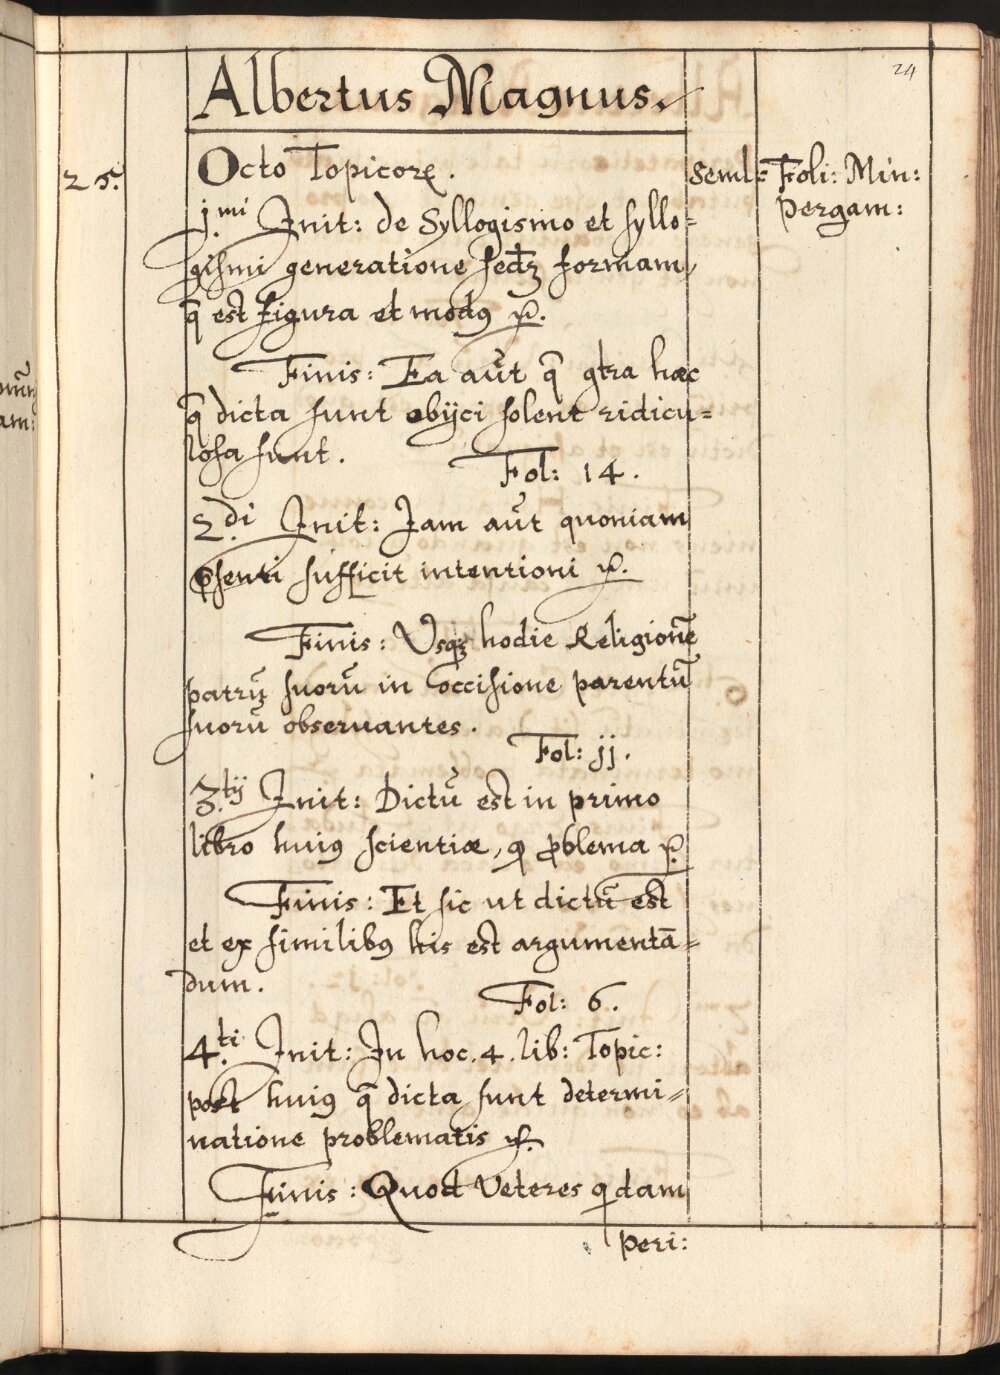 24
Albertus Magnus.
25. Octo Topicorꝝ. Seml= Foli: Min:
pergam:
j.mi Init: de Syllogismo et syllo=
gismi generatione secdꝫ formam,
q̄ est figura et modꝰ ꝛc.
Finis: Ea aūt q̄ ꝯtra hæc
q̄ dicta sunt obijci solent ridicu=
losa sunt.
Fol: 14.
2.di Init: Jam aūt quoniam
p̄senti sufficit intentioni ꝛc.
Finis: Vsqꝫ hodie Religionē
patrū suorū in occisione parentū
suorū obseruantes.
Fol: jj.
3.tij Init: Dictū est in primo
libro huiꝰ scientiæ, ꝙ ꝓblema ꝛc.
Finis: Et sic ut dictū est
et ex similibꝰ his est argumentā=
dum.
Fol: 6.
4.ti Init: In hoc .4. lib: Topic:
post huiꝰ q̄ dicta sunt determi=
natione problematis ꝛc.
Finis: Quod Veteres qdam
peri: